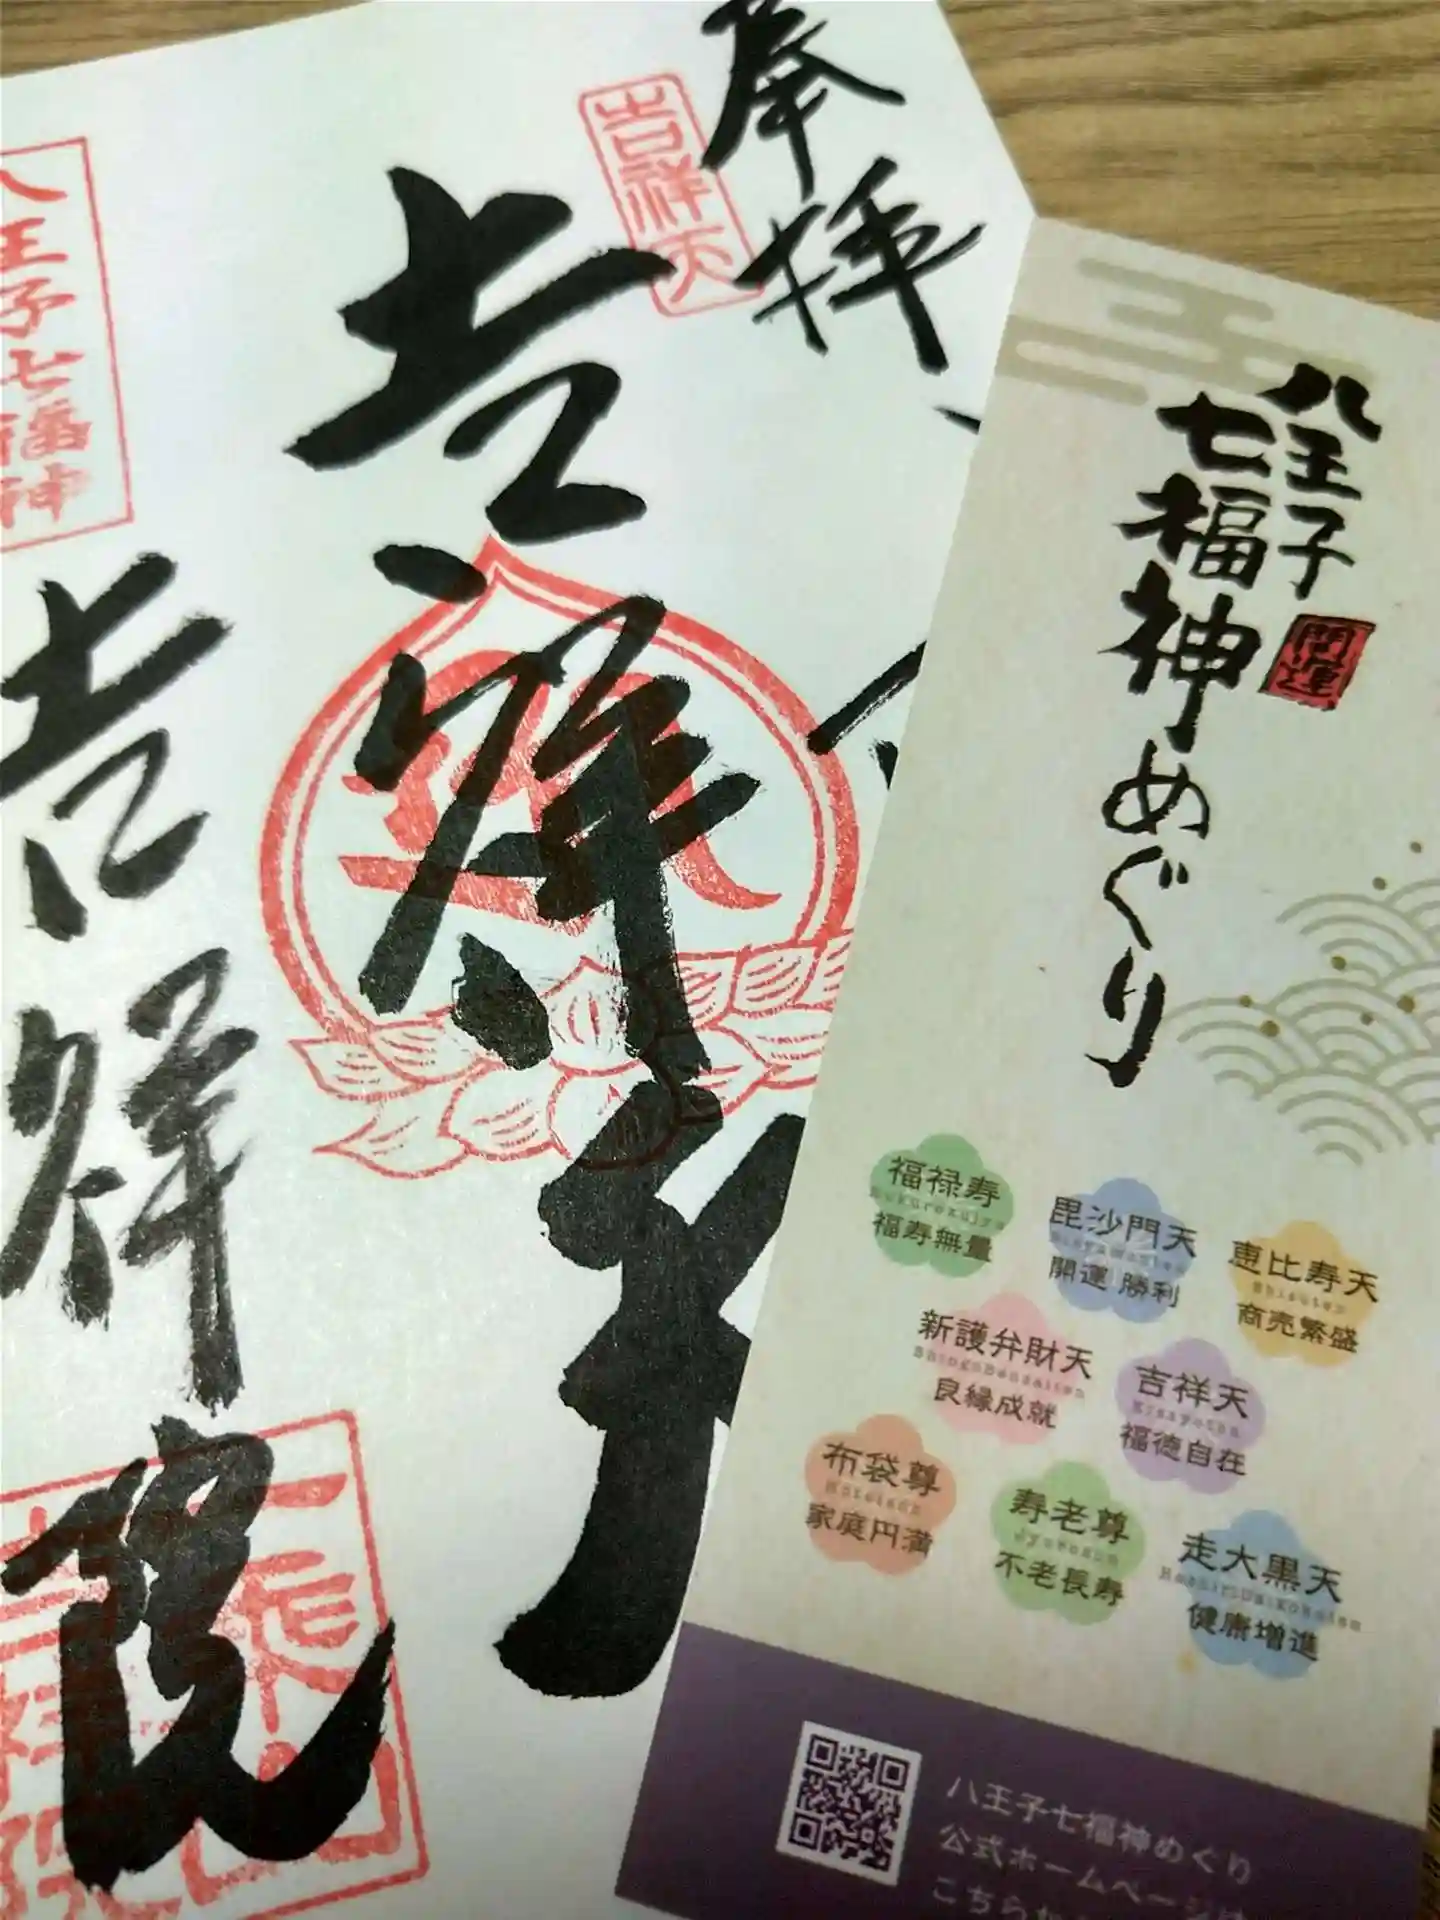 奉拝
吉祥天
吉祥天
八王子七福神
吉祥院
八王子
七福神めぐり
開運
福禄寿
Fukurokuju
福寿無量
毘沙門天
Bishamonten
開運 勝利
恵比寿天
Ebisuten
商売繁盛
新護弁財天
ShingoBenzaiten
良縁成就
吉祥天
Kissyoten
福徳自在
布袋尊
Hoteison
家庭円満
寿老尊
Jyuroson
不老長寿
走大黒天
HashiriDaikokuten
健康増進
八王子七福神めぐり
公式ホームページは
こちらから